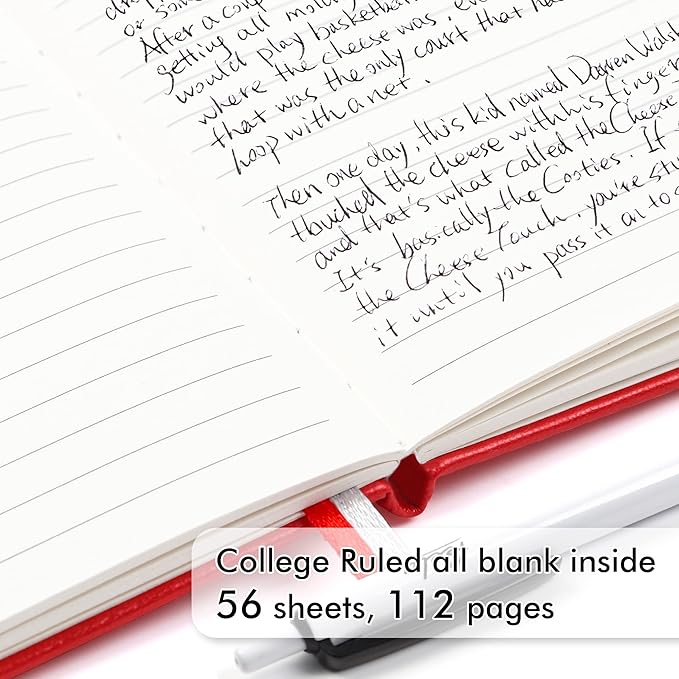 or som
After a coup
getting all mold
would play basketball
where the cheese was, eve
that was the only court that had
hoop with a net.
Then one day, this kid named Darren Walsh
touched the cheese with his finger
and that's what called the Cheese
It's basically the Cooties. If
the Cheese Touch, you're stu
it until you pass it on to s
College Ruled all blank inside
56 sheets, 112 pages